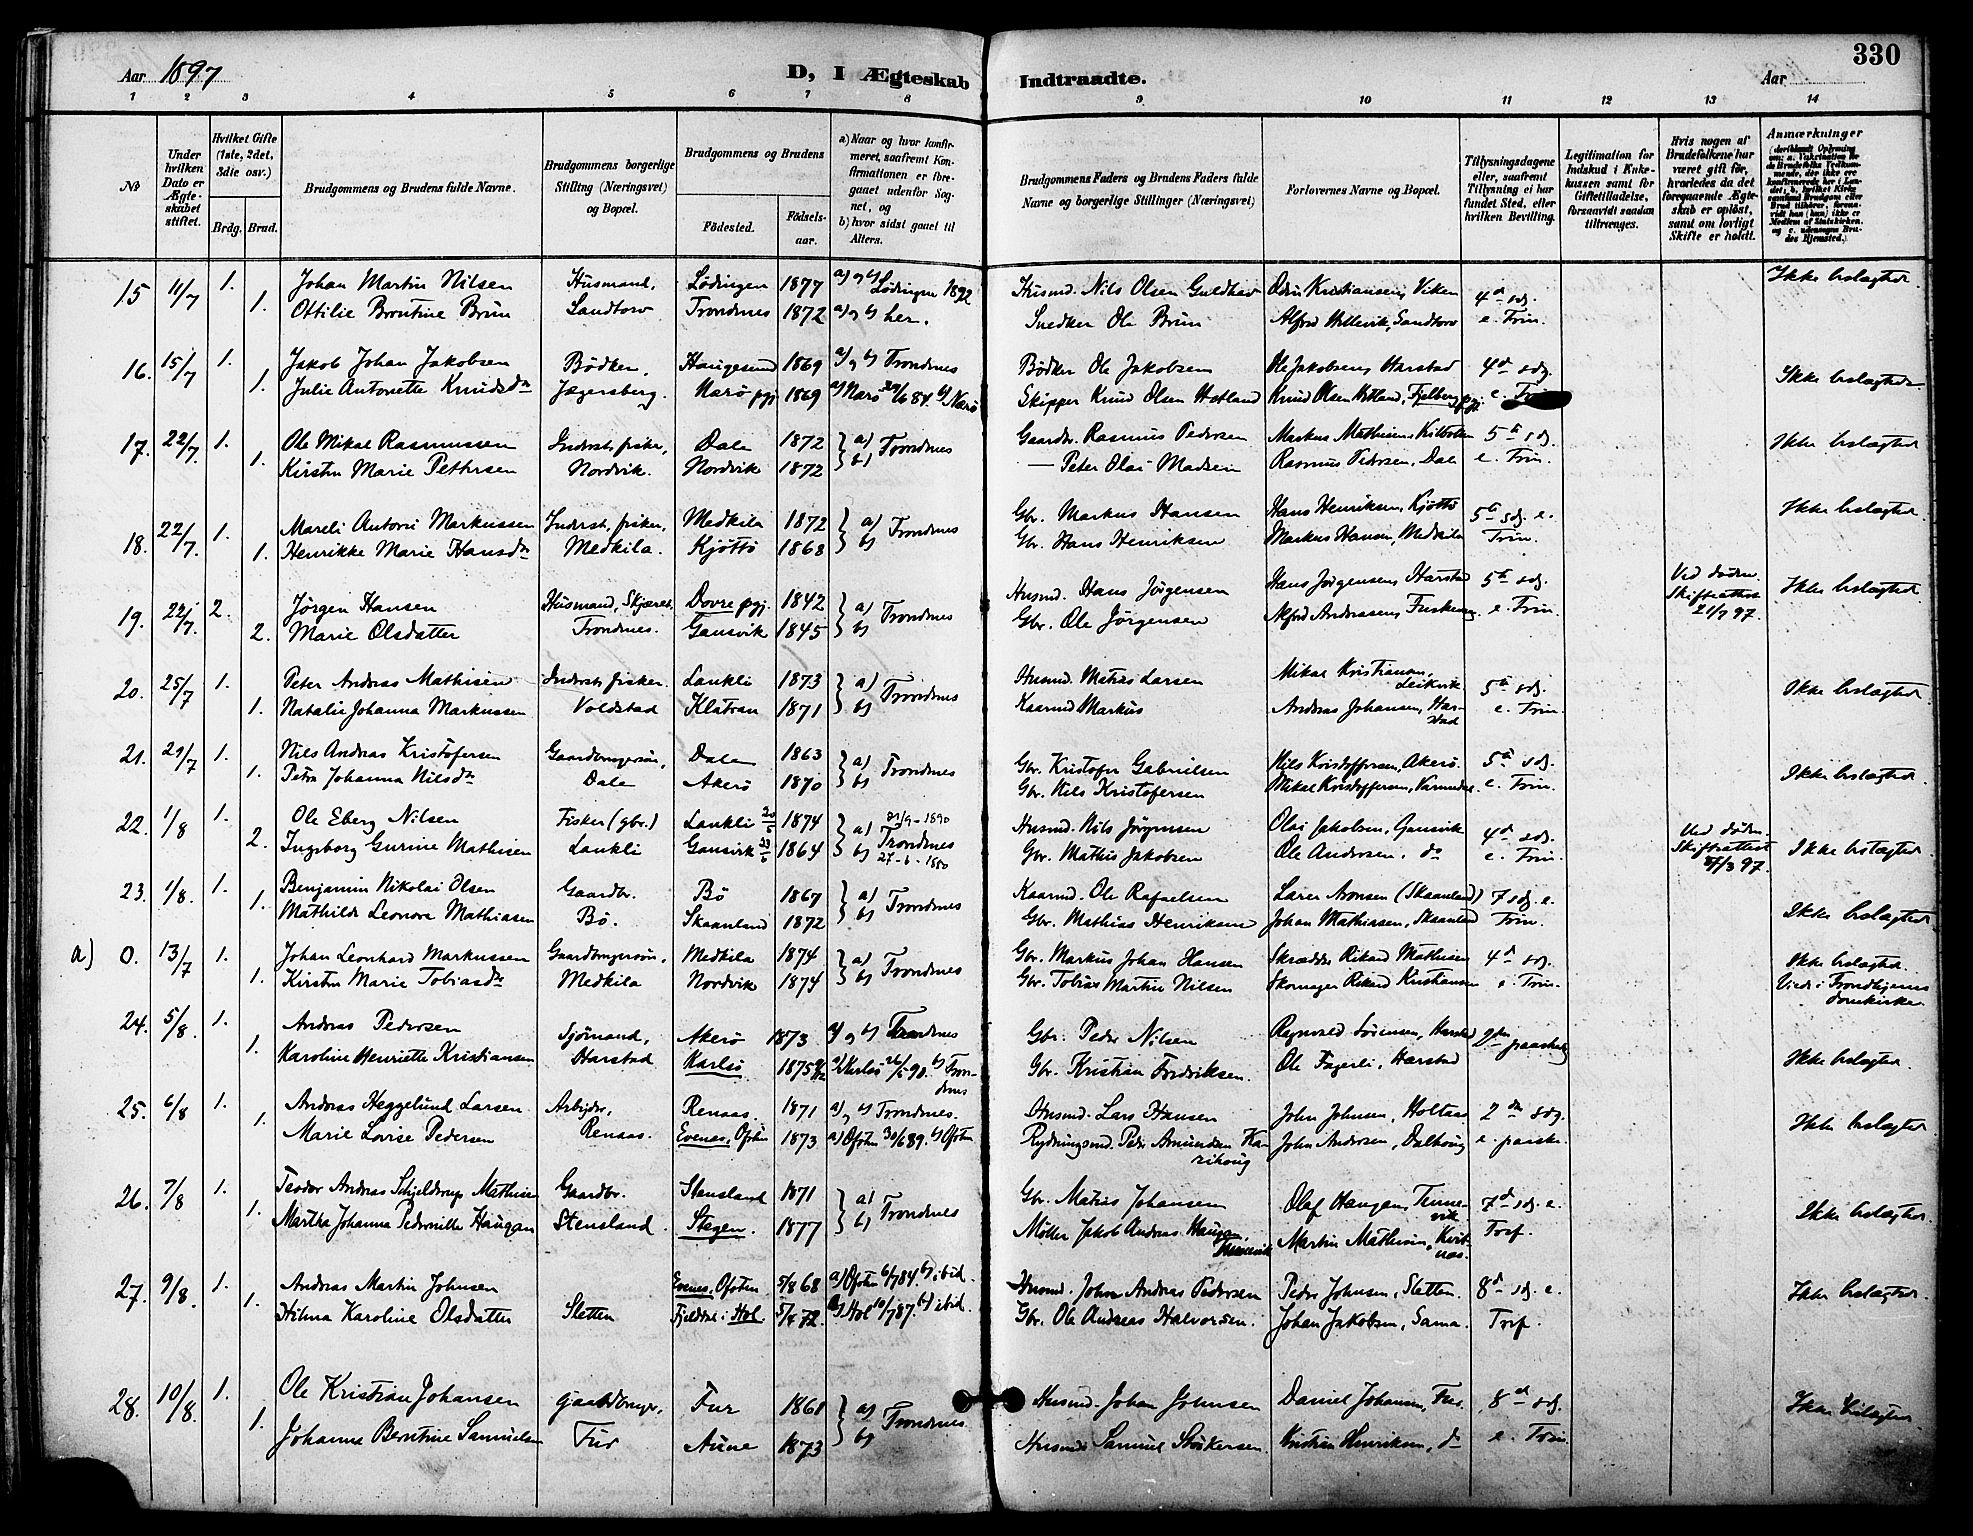 330
Aar 1897
D, I Ægteskab Indtraadte.
Aar
1 2 3 4 5 6 7 8 9 10 11 12 13 14
No
Under hvilken Dato er Ægteskabet stiftet.
Hvilket Gifte (1ste, 2det, 3die osv.)
Brdg. Brud.
Brudgommens og Brudens fulde Navne.
Brudgommens borgerlige Stilling (Næringsvei) og Bopæl.
Brudgommens og Brudens
Fødested. Fødselsaar.
a) Naar og hvor konfirmeret, saafremt Konfirmationen er foregaaet udenfor Sognet, og
b) hvor sidst gaaet til Alters.
Brudgommens Faders og Brudens Faders fulde Navne og borgerlige Stillinger (Næringsvei)
Forlovernes Navne og Bopæl.
Tillysningsdagene eller, saafremt Tillysning ei har fundet Sted, efter hvilken Bevilling.
Legitimation for Indskud i Enkekassen samt for Giftetilladelse, forsaavidt saadan tiltrænges.
Hvis nogen af Brudefolkene har været gift før, hvorledes da det foregaaende Ægteskab er opløst, samt om lovligt Skifte er holdt.
Anmærkninger
15 11/7 1. Johan Martin Nilsen Husmand, Lødingen 1877 a) og b) Lødingen 1892 Husmd. Nils Olsen Guldhav Odin Kristiansen, Viken 4d sdg. Ikke beslægted
1. Ottilie Brontine Brun Sandtorv Trondnes 1872 a) og b) her. Snedker Ole Brun Alfred Hillevik, Sandtorv e. Trin.
16. 15/7 1. Jakob Johan Jakobsen Bødker, Haugesund 1869 a) og b) Trondnes Bødker Ole Jakobsen Ole Jakobsen, Harstad 4d sdg. Ikke beslægted
1. Julie Antonette Knudsdn Jægersberg. Nærø pgj. 1869 Skipper Knud Olsen Hetland Knud Olsen Hetland, Fjelberg pgj. e. Trin
17. 22/7 1. Ole Mikal Rasmussen Inderst, fisker, Dale 1872 a) Trondnes Gaardbr. Rasmus Pedersen Markus Mathisen, 5te sdg. Ikke beslægted
1. Kirsten Marie Pettersen Nordvik. Nordvik 1872 b) — Peter Olai Madsen Rasmus Pedersen, Dale e. Trin.
18. 22/7 1. Mareli Antoni Markussen Inderst, fisker, Medkila 1872 a) Trondnes Gbr. Markus Hansen Hans Henriksen, Kjøttø 5te sdg. e. Ikke beslægted
1. Henrikke Marie Hansdn Medkila. Kjøttø 1868 b) Gbr. Hans Henriksen Markus Hansen, Medkila Trin.
19. 22/7. 2. Jørgen Hansen Husmand, Skjæres, Dovre pgj. 1842 a) Trondnes Husmd. Hans Jørgensen Hans Jørgensen, Harstad 5te sdg. Ved døden. Skifteattest 21/7 97. Ikke beslægted
2. Marie Olsdatter Trondnes. Gansvik 1845 b) Gbr. Ole Jørgensen Alfred Andreassen, e. Trin.
20. 25/7 1. Peter Andreas Mathisen Inderst, fisker Lankli 1873 a) Trondnes Husmd. Matias Larsen Mikal Kristiansen, Leikvik 5te sdg. Ikke beslægted
1. Natalie Johanna Markussen Voldstad Klåtran 1871 b) Kaarmd Markus Andreas Johansen, Harstad e. Trin.
21. 29/7 1. Nils Andreas Kristofersen Gaardbrugersøn, Dale 1863 a) Trondnes Gbr. Kristofer Gabrielsen Nils Kristoffersen, Akerø. 5te sdg. Ikke beslægted
1. Petra Johanna Nilsdn Dale Akerø 1870 b) Gbr. Nils Kristofersen Mikal Kristoffersen, e. Trin.
22. 1/8 1. Ole Eberg Nilsen Fisker (gbr.) Lankli 1874 a) 21/9 - 1890 Trondnes Husmd. Nils Jørgensen Olai Jakobsen, Gansvik 4d sdg. Ved døden. Skifteattest 97. Ikke beslægted
2. Ingeborg Gurine Mathisen Lankli Gansvik 1864 b) 27-6-1880 Gbr. Mathis Jakobsen Ole Andersen, do e. Trin.
23. 1/8. 1. Benjamin Nikolai Olsen Gaardbr. Bø 1867 a) Trondnes Kaarmd. Ole Rafaelsen Lars Aronsen (Skaanland) 7 sdg. e. Ikke beslægted
1. Mathilde Leonore Mathiasen Bø. Skaanland 1872 b) Gbr. Mathias Henriksen Johan Mathiassen, Skaanland Trin.
a) 0. 13/7 1. Johan Leonhard Markussen Gaardbrugersøn, Medkila 1874 a) Trondnes Gbr. Markus Johan Hansen Skrædder Rikard Mathisen 4d sdg. Ikke beslægted.
1. Kirsten Marie Tobiasdn Medkila Nordvik 1874 b) Gbr. Tobias Martin Nilsen Skomager Rikard Kristiansen e Trin. Viede i Trondhjems domkirke
24. 5/8. 1. Andreas Pedersen Sjømand, Akerø 1873 a) og b) Trondnes Gbr. Peder Nilsen Ragnvald Sørensen, Harstad 2den paaskedg
1. Karoline Henriette Kristiansen Harstad Karlsø 1875 a) Karlsø 26/5 90. b) Trondnes Gbr. Kristian Fredriksen. Ole Fagerli, Harstad Ikke beslægted
25. 6/8 1. Andreas Heggelund Larsen Arbejder, Renaas. 1871 a) og b) Trondnes. Husmd. Lars Hansen John Johnsen, Holtaas 2den sdg. Ikke beslægted
1. Marie Lovise Pedersen Renaas. Evenes, Ofoten 1873 a) Ofoten 30/6 89. b) Ofoten Rydningsmd. Peder Amundsen John Andersen, Dalhoug e. paaske.
26. 7/8 1. Teodor Andreas Schjelderup Mathisen Gaardbr. Stensland 1871 a) Trondnes Gbr. Matias Johansen Olaf Haugen, Tennevik 7d sdg. e. Ikke beslægted
1. Martha Johanna Pedernille Haugan Stensland. Stegen. 1877 b) Møller Jakob Andreas Haugen, Tennevik Martin Mathisen, Kvitnes. Tref.
27. 9/8. 1. Andreas Martin Johnsen Evenes, Ofoten 5/8 68 a) Ofoten 6/7 84. b) ibid. Husmd. John Andreas Pedersen Peder Johnsen, Sletten. 8d sdg. e. Ikke beslægted
1. Hilma Karoline Olsdatter Sletten Fjelddal i Hol. 5/4 72. a) Hol 10/7 87. b) ibid. Gbr. Ole Andreas Halvorsen. Johan Jakobsen, Sama. Tref.
28. 10/8. 1. Ole Kristian Johansen gaardbruger, Fur 1861 a) Trondnes. Husmd. Johan Johnsen Daniel Johansen, Fur. 8d sdg. Ikke beslægted
1. Johanna Berntine Samuelsen Fur Aune 1873 b) Husmd. Samuel Størkersen. Kristian Henriksen, do e. Trin.